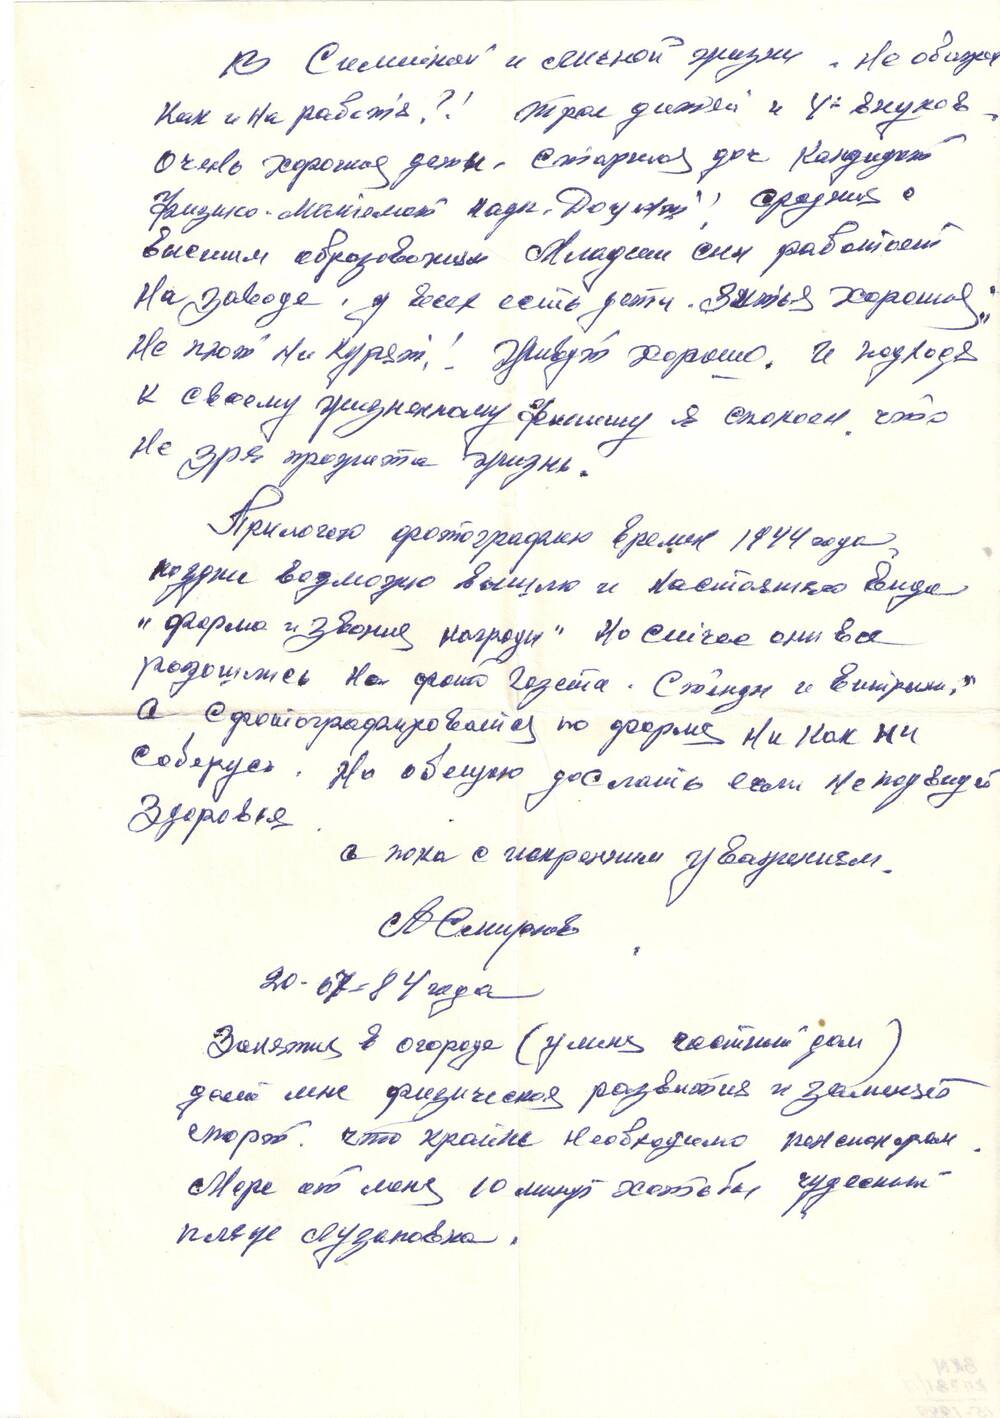 В Семейной и личной жизни. Не обижен
Как и на работе?! трое детей и 4 внуков.
Очень хорошие дети. Старшая доч Кандидат
физико-математ наук. Доцент! средняя с
высшим образованием Младший сын работает
На заводе. у всех есть дети. Зятья хорошия"
Не пют ни курят! Живут хорошо. И подходя
к своему жизненному финишу я спокоен, что
Не зря прожита жизнь.
Прилогаю фотографию времен 1944 года
позджи возможно вышлю и настоящего вида
"форма и звания награды" Но сейчас они все
разошлись На фото Газета. Стенды и витрины."
А сфотографироватся по форме Ни как ни
соберусь. Но обещаю дослать если не подведет
Здоровья
а пока с искренним уважением.
А Смирнов
20-07-84 года
Занятия в огороде (у меня частный дом)
дают мне физическое развития и заменяет
спорт. что крайне необходимо пенсионерам.
Море от меня 10 минут ходьбы чудесный
пляж Лузановка.